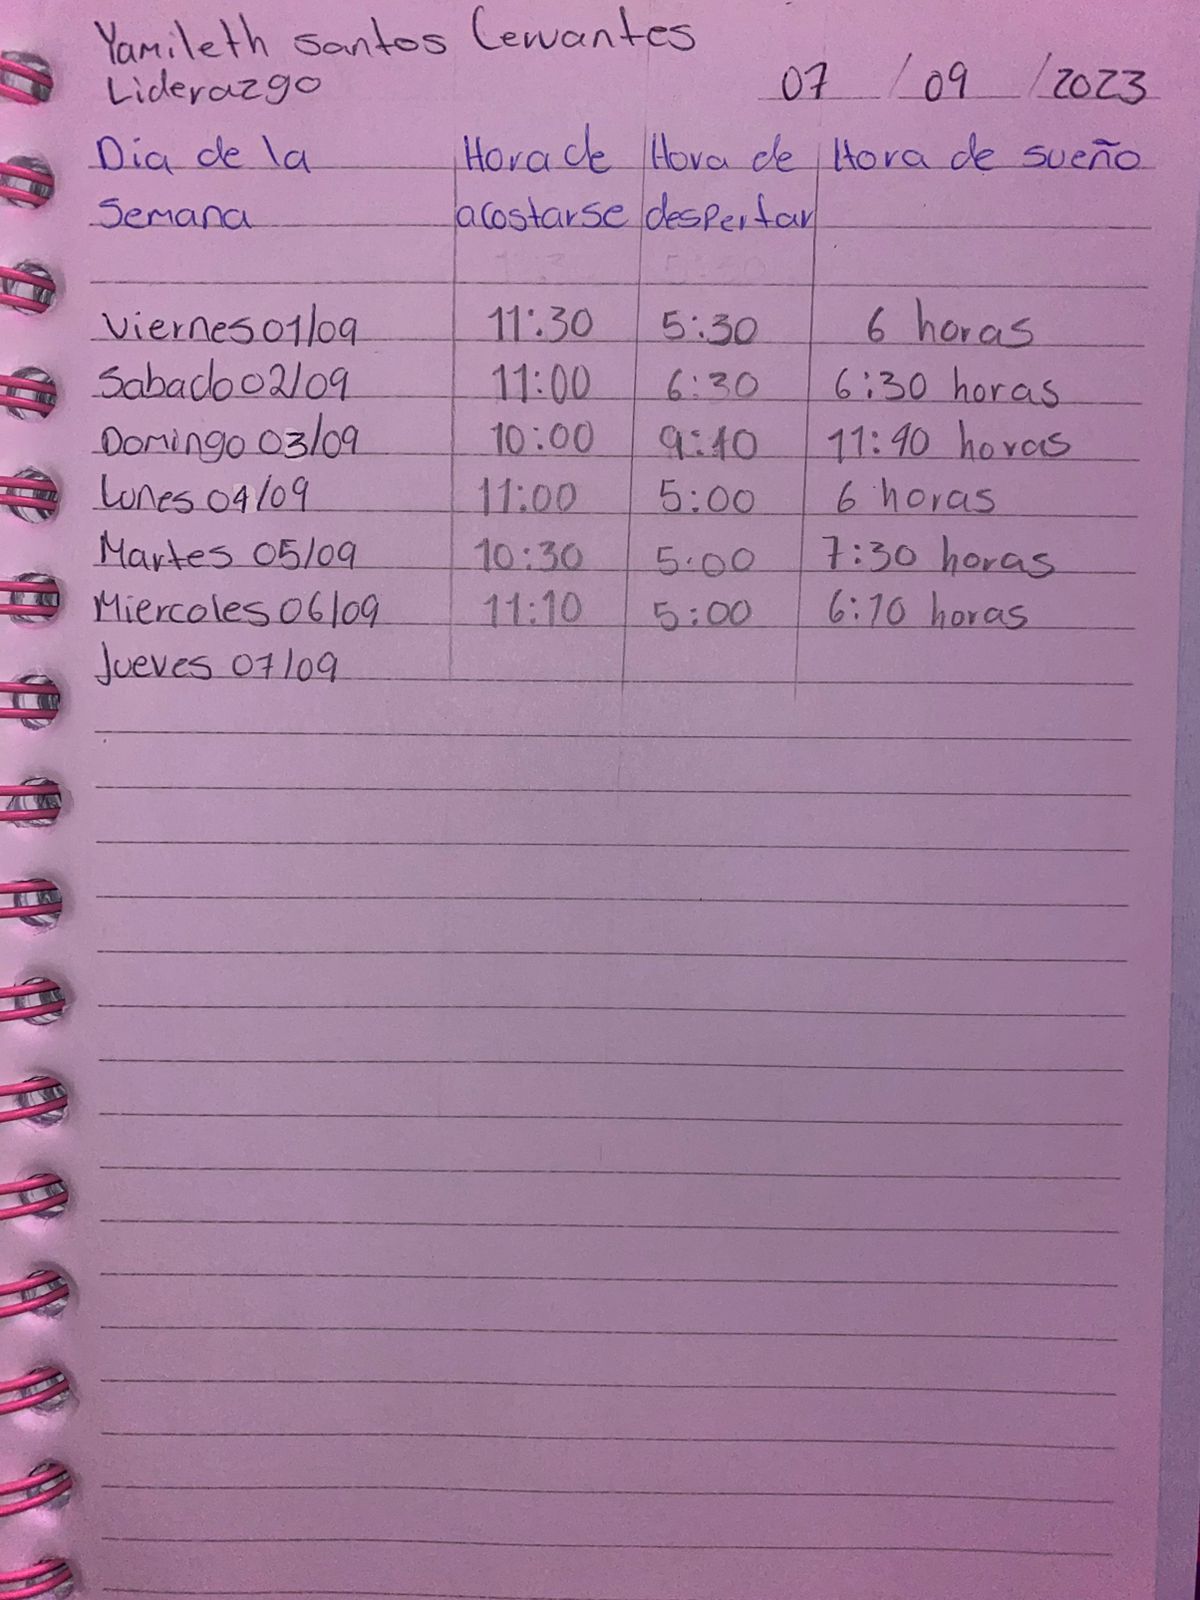 Yamileth Santos Cervantes
Liderazgo 07 / 09 / 2023
Dia de la Hora de Hora de Hora de sueño
Semana acostarse despertar
Viernes 01/09 11:30 5:30 6 horas
Sabado 02/09 11:00 6:30 6:30 horas
Domingo 03/09 10:00 9:40 11:40 horas
Lunes 04/09 11:00 5:00 6 horas
Martes 05/09 10:30 5:00 7:30 horas
Miercoles 06/09 11:10 5:00 6:10 horas
Jueves 07/09